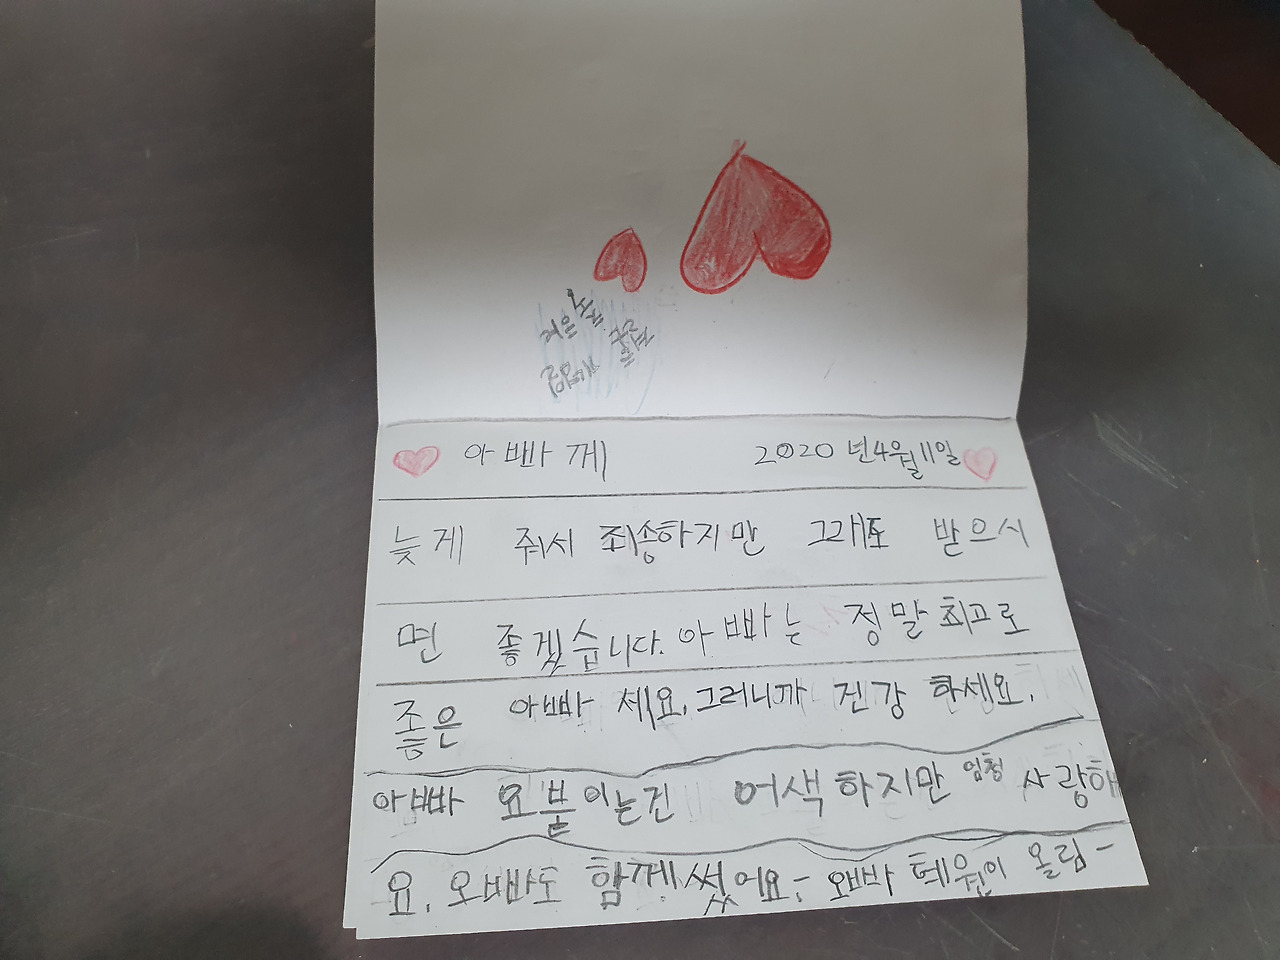 아빠께 2020년4월11일
늦게 줘서 죄송하지만 그래도 받으시
면 좋겠습니다. 아빠는 정말 최고로
좋은 아빠 세요. 그러니까 건강 하세요.
아빠 요붙이는건 어색하지만 엄청 사랑해
요. 오빠도 함께썼어요- 오빠 혜원이 올림-